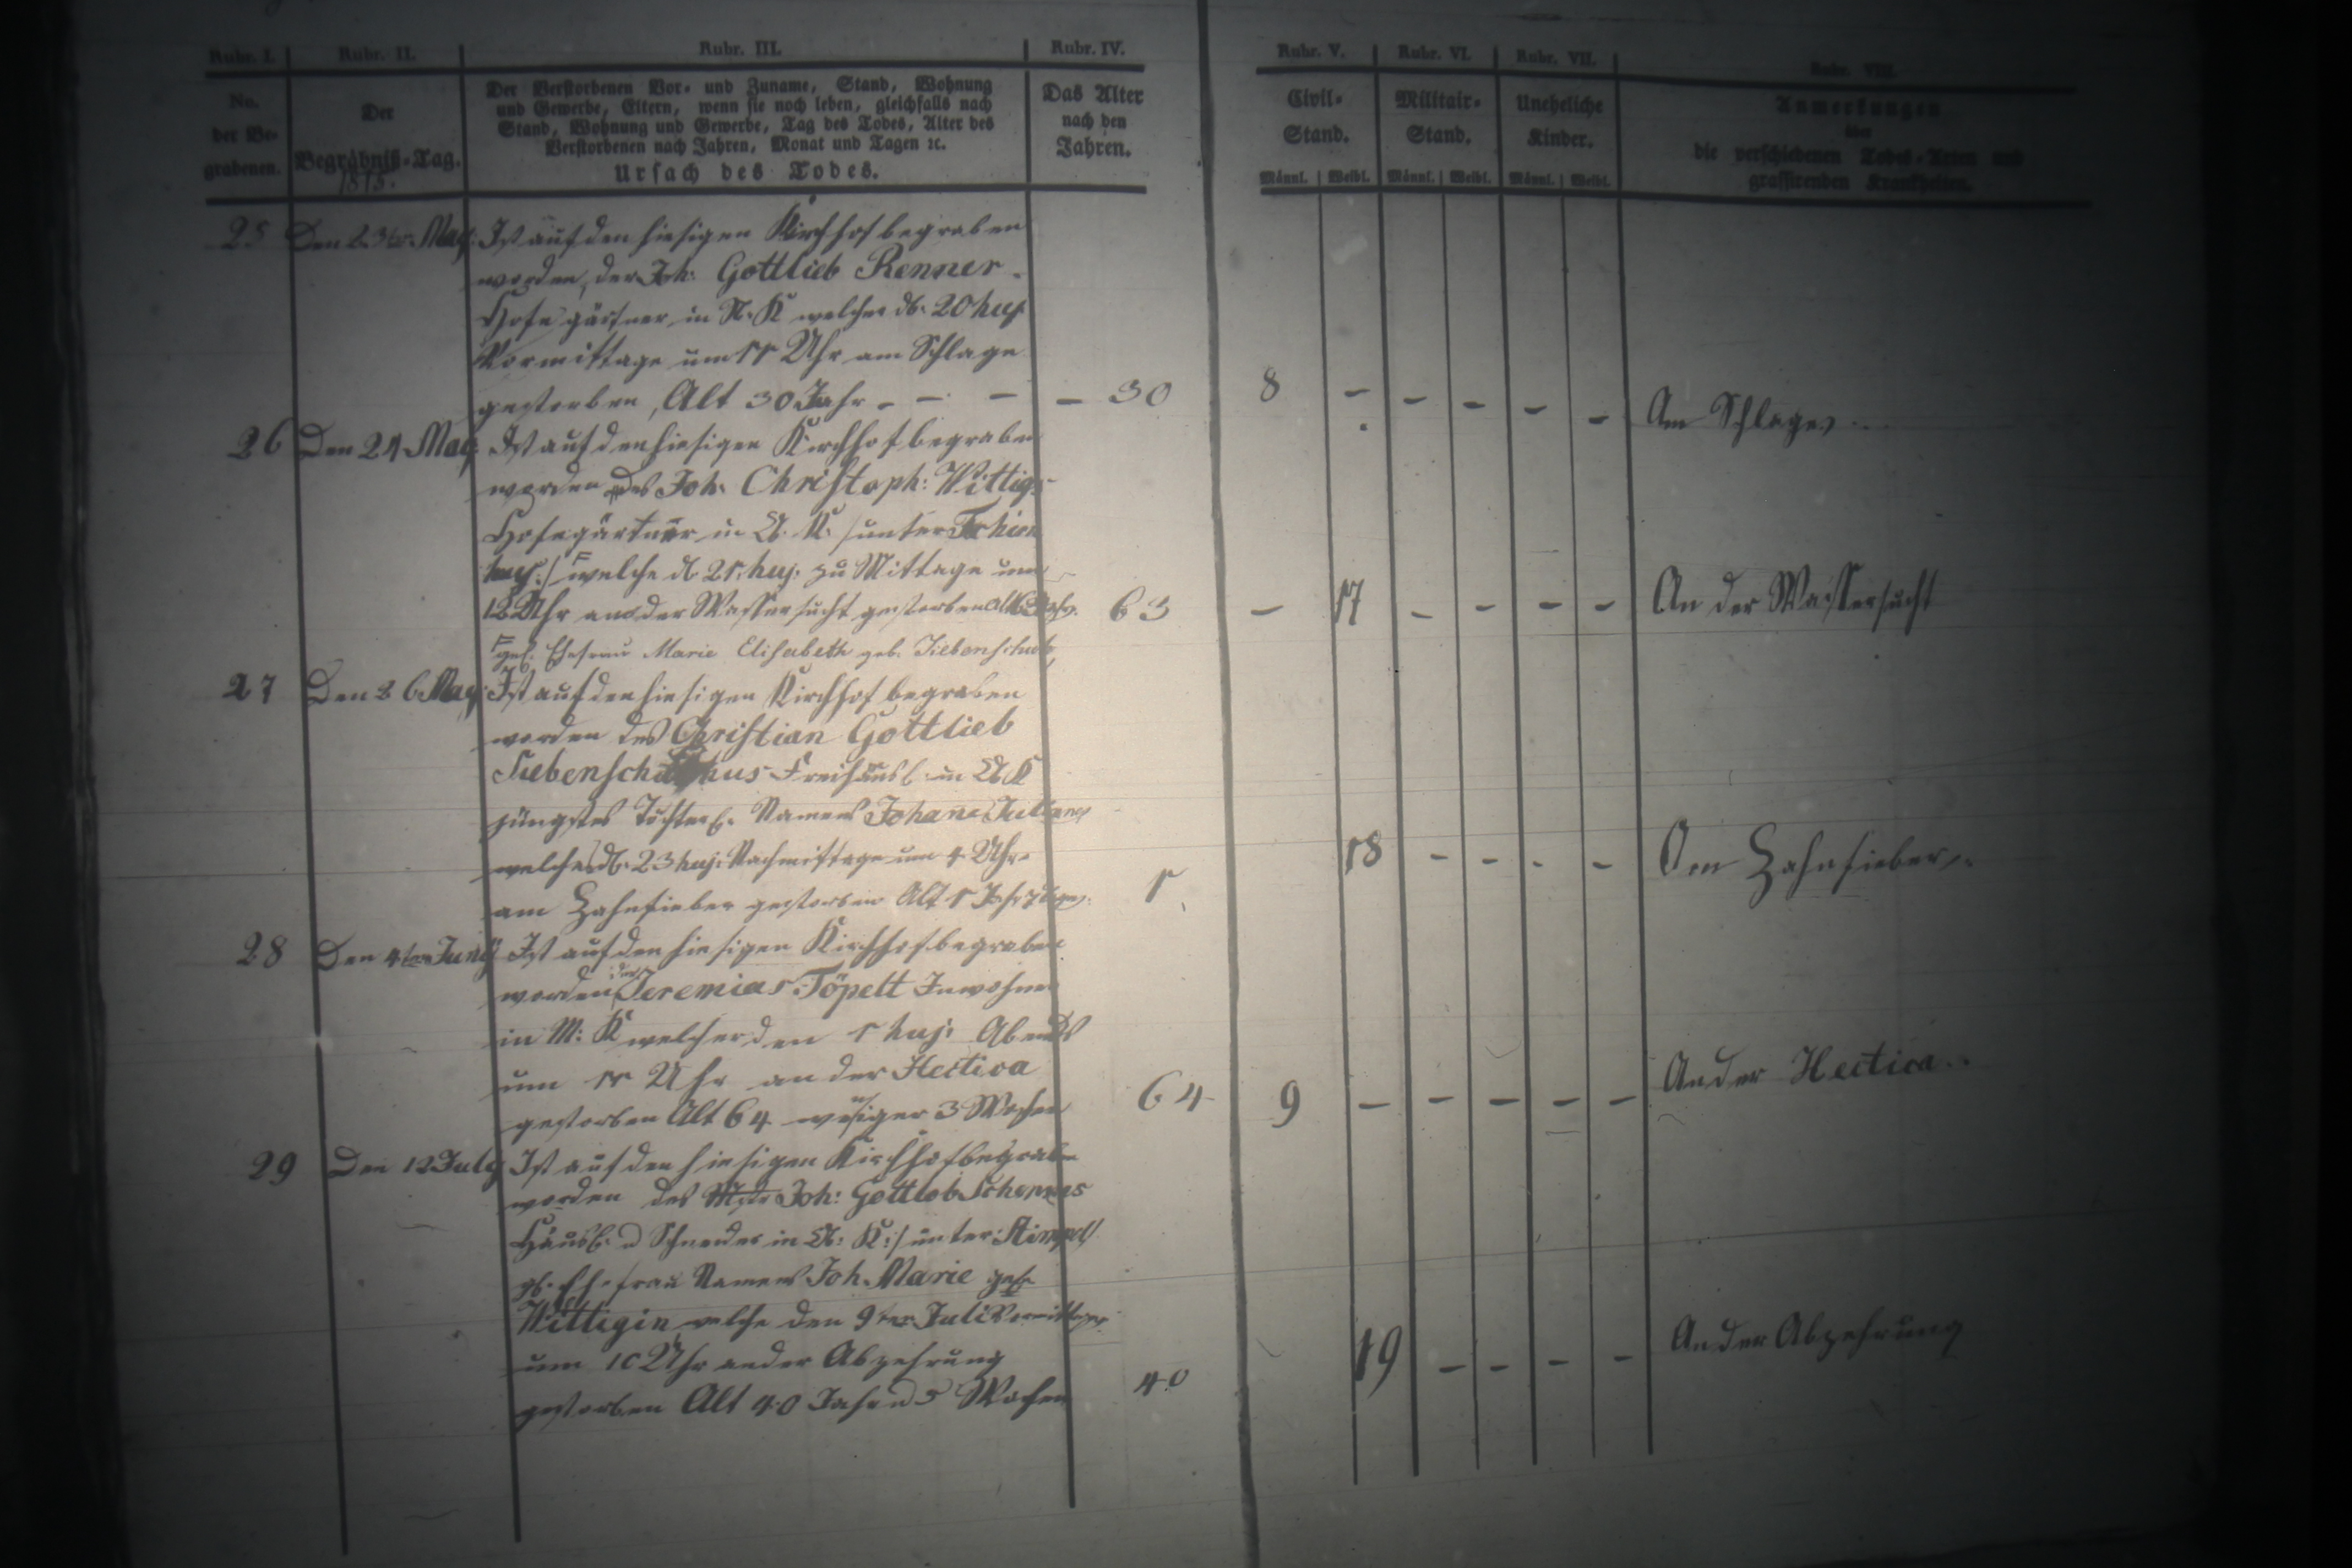 Rubr. I. Rubr. II. Rubr. III. Rubr. IV. Rubr. V. Rubr. VI. Rubr. VII. Rubr. VIII.
No. der Begrabenen.
Der Begräbniß-Tag.
1815.
Der Verstorbenen Vor- und Zuname, Stand, Wohnung
und Gewerbe, Eltern, wenn sie noch leben, gleichfalls nach
Stand, Wohnung und Gewerbe, Tag des Todes, Alter des
Verstorbenen nach Jahren, Monat und Tagen ꝛc.
Ursach des Todes.
Das Alter
nach den
Jahren.
Civil-
Stand.
Männl. Weibl.
Militair-
Stand.
Männl. Weibl.
Uneheliche
Kinder.
Männl. Weibl.
Anmerkungen
über
die verschiedenen Todes-Arten und
grassirenden Krankheiten.
25 Den 23ten May Ist auf den hiesigen Kirchhof begraben
worden, der Joh: Gottlieb Renner
Hofegärtner in N. K welcher d. 20 huj.
Vormittage um 11 Uhr am Schlage
gestorben, Alt 30 Jahr - - - - 30 8 - - - - - Am Schlage
26 Den 24 May Ist auf den hiesigen Kirchhof begraben
worden des Joh. Christoph: Wittigs
Hofegärtner in K. /unter
welche d. 21. huj: zu Mittage um
12 Uhr an der Wassersucht gestorben alt 63 Jahr. 63 - 17 - - - - An der Wassersucht
Ehefrau Marie Elisabeth geb. Siebenschuh
27 Den 26 May Ist auf den hiesigen Kirchhof begraben
worden des Christian Gottlieb
Freihäusl. in K
jüngstes Töchterl. Namens Johane Juliane
welches d. 23 huj: Nachmittage um 4 Uhr
am Zahnfieber gestorben Alt 1 Jahr 1 18 - - - - Am Zahnfieber
28 Den 4ten Juny Ist auf den hiesigen Kirchhof begraben
worden der Jeremias Töpelt Inwohner
in M: K welcher den 1 huj: Abends
um 11 Uhr an der Hectica
gestorben Alt 64 weniger 3 Wochen 64 9 - - - - - An der Hectica
29 Den 12 July Ist auf den hiesigen Kirchhof begraben
worden des Joh: Gottlob
Häusl. u Schneider in K: /unter
Ehefrau Namens Joh. Marie geb
Wittigin welche den 9ten Juli Vormittage
um 10 Uhr an der Abzehrung
gestorben Alt 40 Jahr u 5 Wochen 40 19 - - - - An der Abzehrung